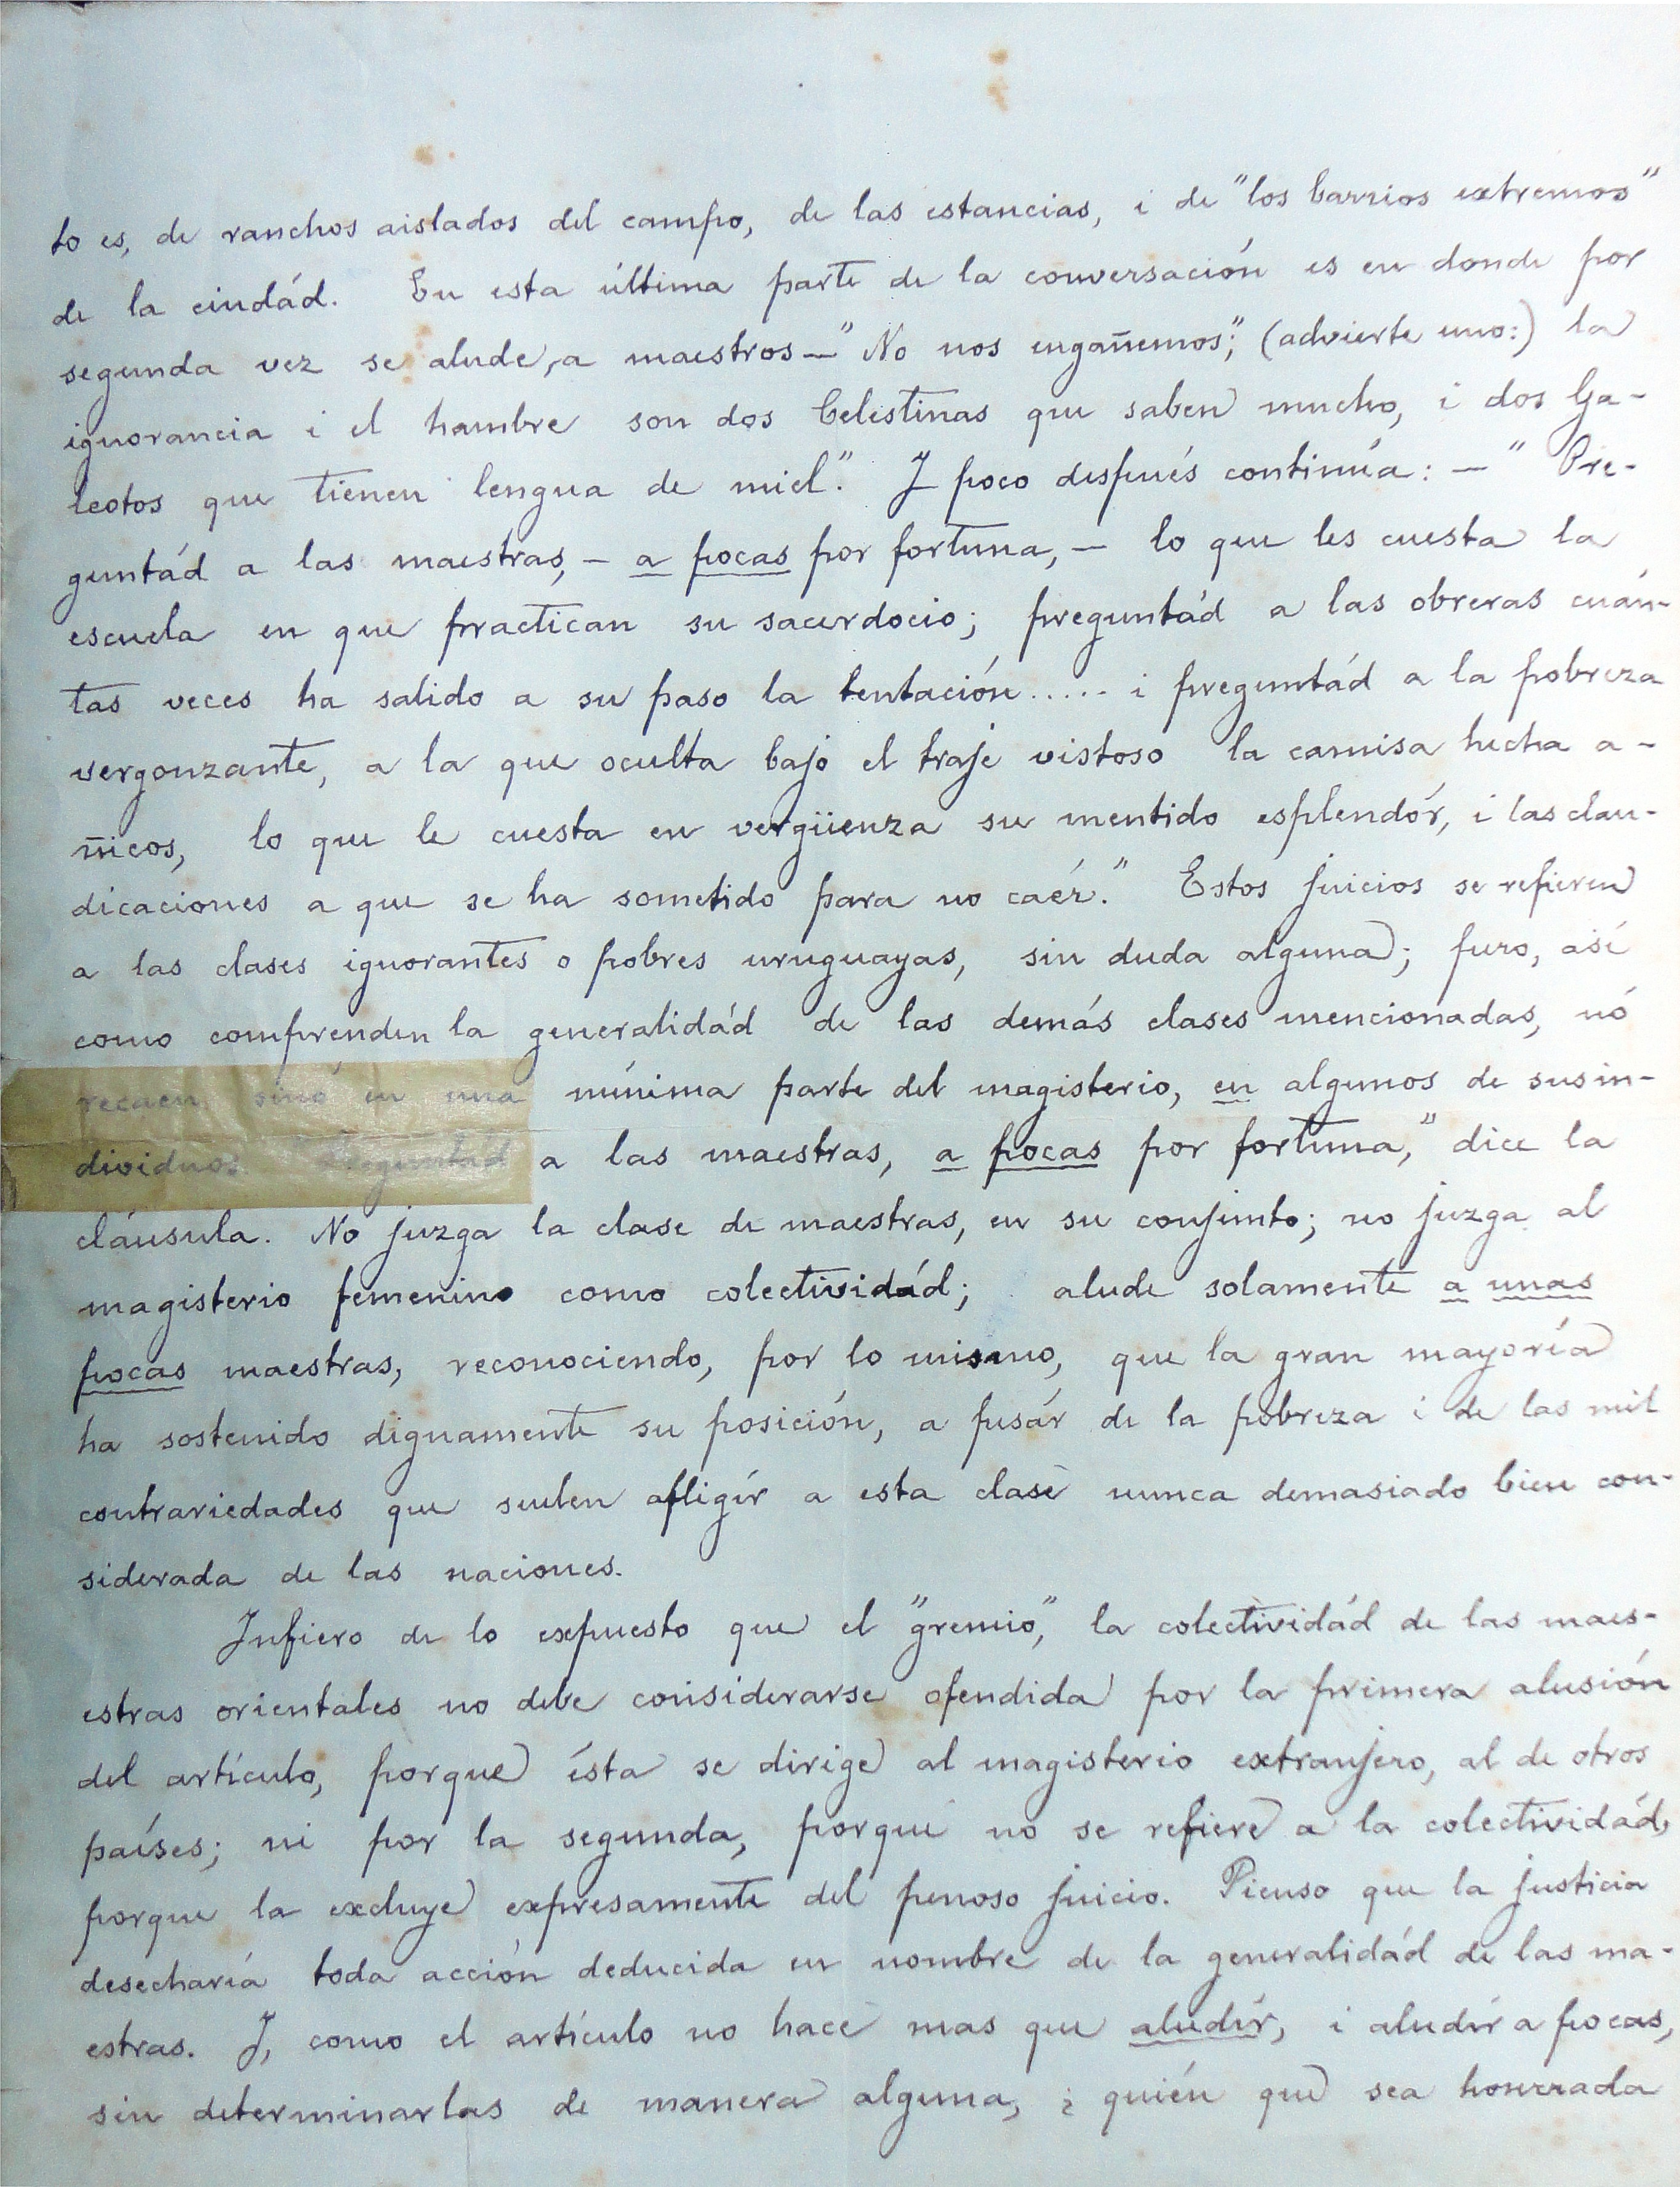 to es, de ranchos aislados del campo, de las estancias, i de "los barrios extremos"
de la ciudád. En esta última parte de la conversación es en donde por
segunda vez se alude, a maestros — "No nos engañemos"; (advierte uno:) la
ignorancia i el hambre son dos Celestinas que saben mucho, i dos Ga-
leotos que tienen lengua de miel." I poco después continúa: — "Pre-
guntád a las maestras, — a pocas por fortuna, — lo que les cuesta la
escuela en que practican su sacerdocio; preguntád a las obreras cuán-
tas veces ha salido a su paso la tentación ..... i preguntád a la pobreza
vergonzante, a la que oculta bajo el traje vistoso la camisa hecha a-
ñicos, lo que le cuesta en vergüenza su mentido esplendór, i las clau-
dicaciones a que se ha sometido para no caér." Estos juicios se refieren
a las clases ignorantes o pobres uruguayas, sin duda alguna; pero, así
como comprenden la generalidád de las demás clases mencionadas, nó
recaen sinó en una mínima parte del magisterio, en algunos de sus in-
dividuos. Preguntád a las maestras, a pocas por fortuna," dice la
cláusula. No juzga la clase de maestras, en su conjunto; no juzga al
magisterio femenino como colectividád; alude solamente a unas
pocas maestras, reconociendo, por lo mismo, que la gran mayoría
ha sostenido dignamente su posición, a pesár de la pobreza i de las mil
contrariedades que suelen afligír a esta clase nunca demasiado bien con-
siderada de las naciones.
Infiero de lo expuesto que el "gremio", la colectividád de las maes-
estras orientales no debe considerarse ofendida por la primera alusión
del artículo, porque ésta se dirige al magisterio extranjero, al de otros
países; ni por la segunda, porque no se refiere a la colectividád,
porque la excluye expresamente del penoso juicio. Pienso que la justicia
desecharía toda acción deducida en nombre de la generalidád de las ma-
estras. I, como el artículo no hace mas que aludír, i aludír a pocas,
sin determinarlas de manera alguna, ¿ quién que sea honrrada